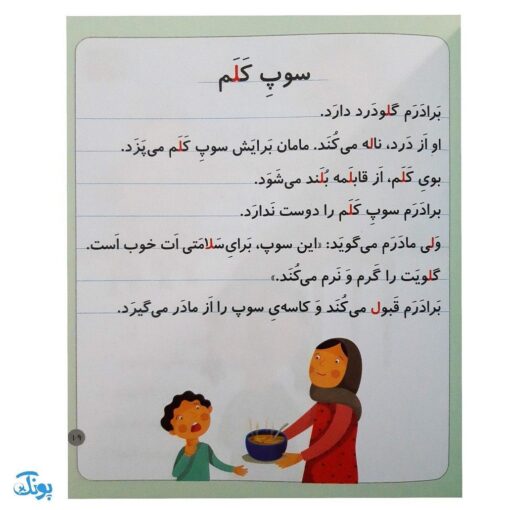 سوپِ کَلَم
بَرادَرَم گلودَرد دارَد.
او اَز دَرد، ناله می‌کُنَد. مامان بَرایَش سوپِ کَلَم می‌پَزَد.
بویِ کَلَم، اَز قابلَمه بُلَند می‌شَوَد.
بَرادَرَم سوپِ کَلَم را دوست نَدارَد.
وَلی مادَرَم می‌گویَد: «این سوپ، بَرایِ سَلامَتی اَت خوب اَست.
گلویَت را گَرم وَ نَرم می‌کُنَد.»
بَرادَرَم قَبول می‌کُنَد وَ کاسه‌یِ سوپ را اَز مادَر می‌گیرَد.
۱۹
پونک